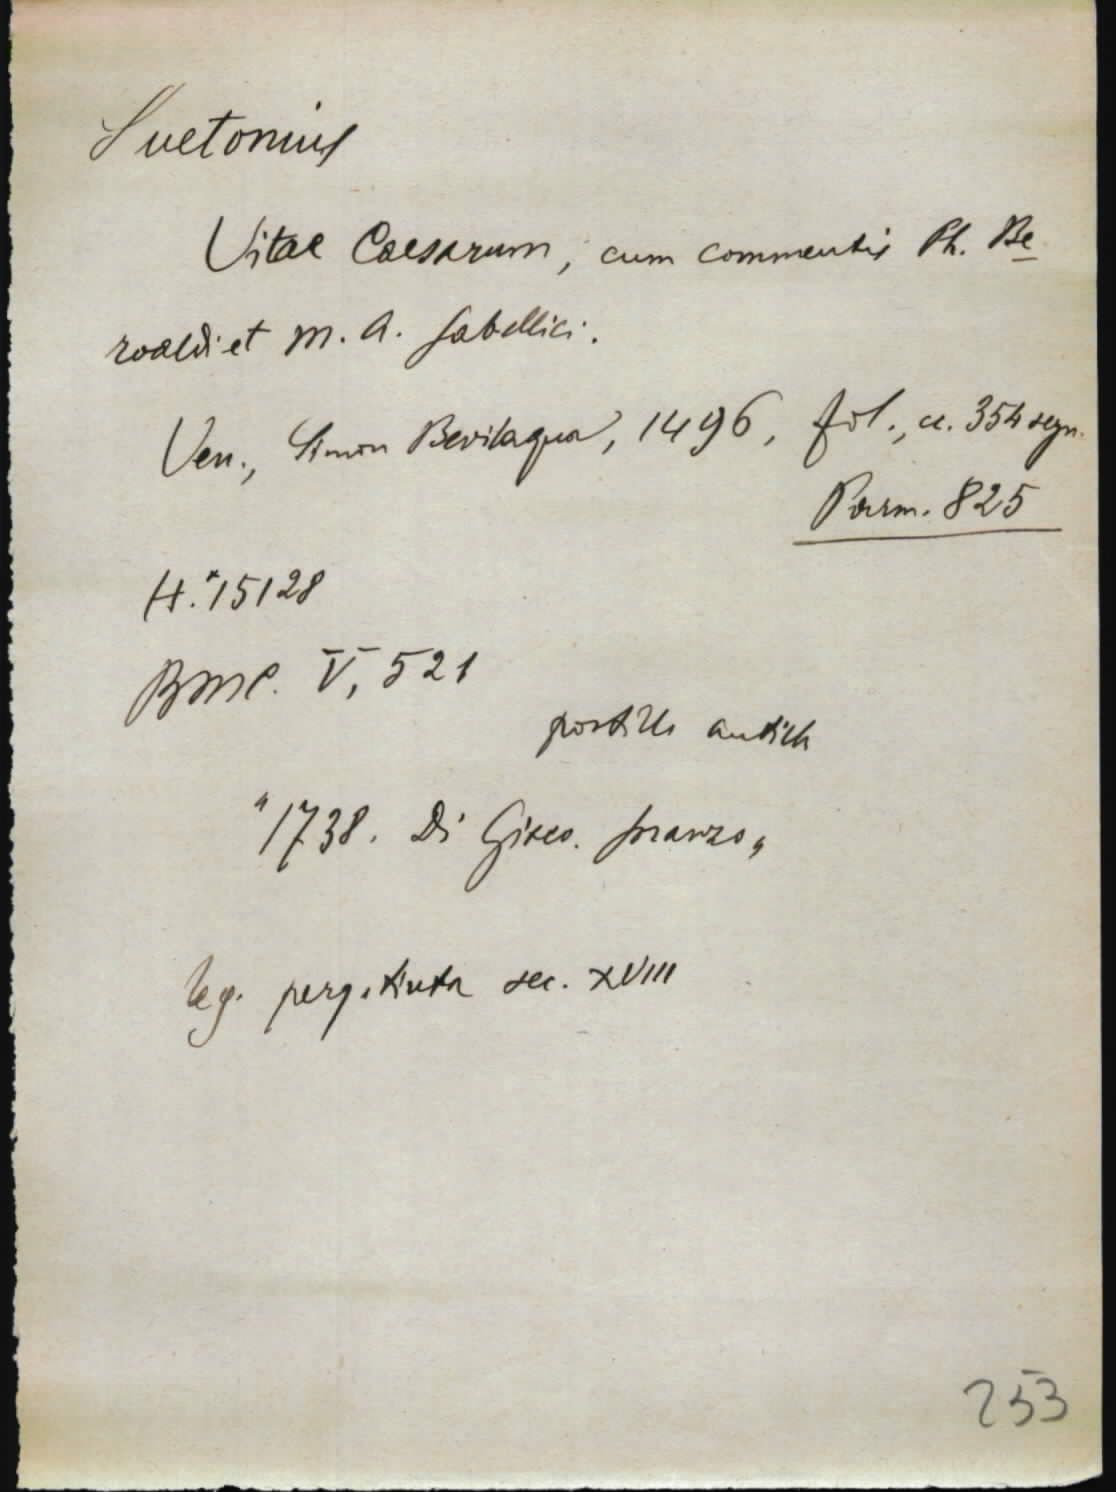 Suetonius
Vitae Caesarum, cum commentis Ph. Be
roaldi et M. A. Sabellici.
Ven., Simon Bevilaqua, 1496, fol., cc. 354 segn.
Parm. 825
H.*15128
BMC. V, 521
postille antich
"1738. Di Giaco. Soranzo"
leg. perg. tinta sec. XVIII
253